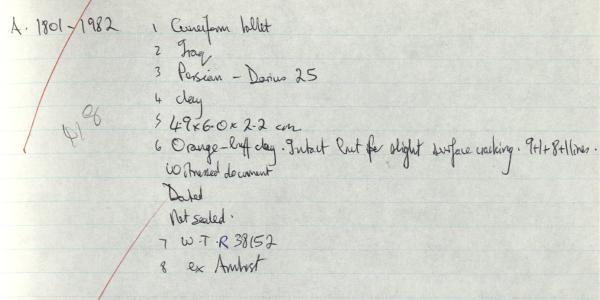 A. 1801-1982
1 Cuneiform tablet
2 Iraq
3 Persian - Darius 25
4 clay
5 4.9 x 6.0 x 2.2 cm
6 Orange-buff clay. Intact but for slight surface cracking. 9+1+8+1 lines.
Witnessed document
Dated
Not sealed.
7 W.T.R 38152
8 ex Amherst